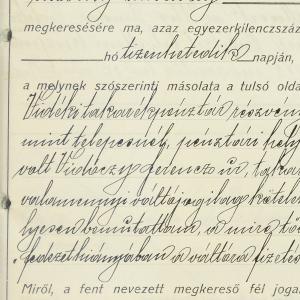 megkeresésére ma, azaz egyezerkilenczszáz
hó tizenhetedik napján,
a melynek szószerinti másolata a tulsó olda
Vidéki takarékpénztár részvén
mint telepesnél, pénztári hely
volt Vidóczy Ferencz úr, taka
valamennyi váltójogilag kötele
lyesen bemutattam, a mire az
fedezet hiányában a váltóra fizetés
Miről, a fent nevezett megkereső fél joga